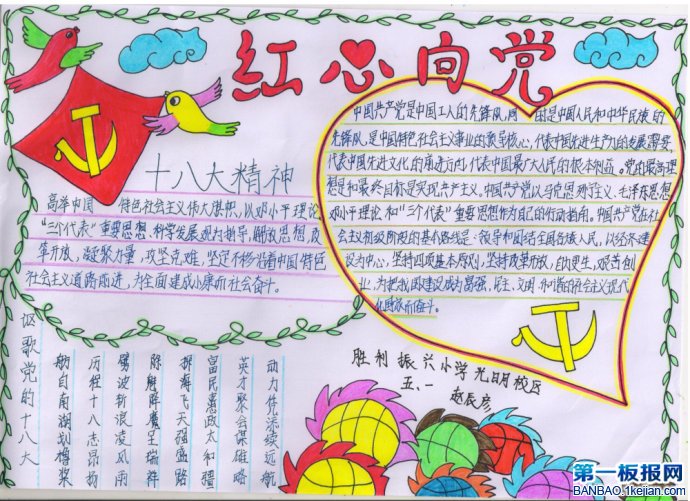 红心向党
中国共产党是中国工人的先锋队,同 的是中国人民和中华民族的
先锋队,是中国特色社会主义事业的领导核心,代表中国先进生产力的发展需要,
代表中国先进文化的前进方向,代表中国最广大人民的根本利益。党的最高理
想是和最终目标是实现共产主义。中国共产党以马克思列宁主义、毛泽东思想
邓小平理论和“三个代表”重要思想作为自己的行动指南。中国共产党在社
会主义初级阶段的基本路线是:领导和团结全国各族人民,以经济建
设为中心,坚持四项基本原则,坚持改革开放,自力更生,艰苦创
业,为把我国建设成为富强,民主、文明、和谐的社会主义现代
化国家而奋斗。
十八大精神
高举中国 特色社会主义伟大旗帜,以邓小平理论
“三个代表”重要思想,科学发展观为指导,解放思想,改
革开放,凝聚力量,攻坚克难,坚定不移沿着中国特色
社会主义道路前进,为全面建成小康而社会奋斗。
讴歌党的十八大
舫自南湖划橹桨
历程十八志昂扬
劈波斩浪凌风雨
除魔降魔呈瑞祥
探海飞天强盛路
富民惠政太和疆
英才聚会谋雄略
动力凭添续远航
胜利振兴小学光明校区
五、一 赵辰彦
第一板报网
BANBAO.1kejian.com